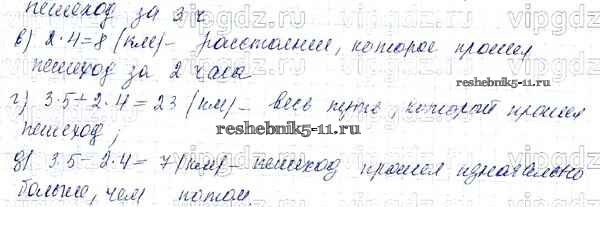 пешеход за 3 ч
в) 2·4=8 (км) – расстояние, которое прошел
пешеход за 2 часа
г) 3·5+2·4=23 (км) – весь путь, который прошел
пешеход;
д) 3·5–2·4=7 (км) – пешеход прошел изначально
больше, чем потом.
vipgdz.ru
reshebnik5-11.ru
reshebnik5-11.ru